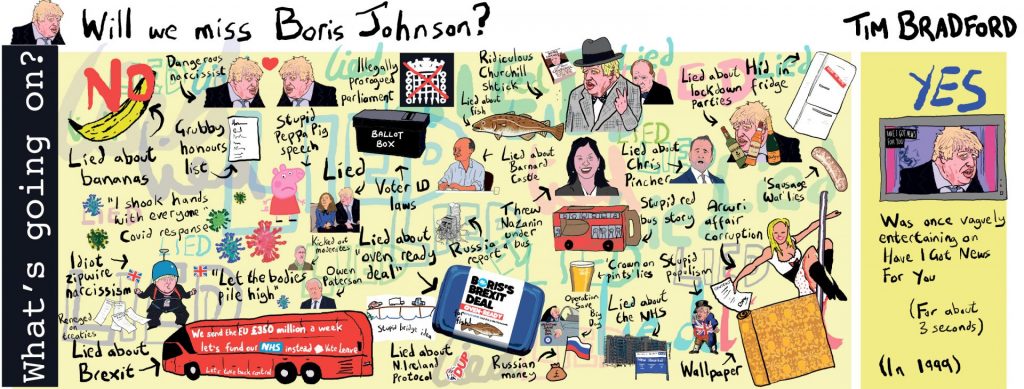 Will we miss Boris Johnson?
TIM BRADFORD
What's going on?
NO
Dangerous
narcissist
Illegally
prorogued
parliament
Ridiculous
Churchill
Shtick
Lied about
fish
Lied about
lockdown
parties
Hid in
fridge
Lied about
bananas
Grubby
honours
list
Stupid
Peppa Pig
speech
BALLOT
BOX
Voter ID
laws
Lied about
Barnard
Castle
Lied about
Chris
Pincher
'Sausage
War' lies
"I shook hands
with everyone"
Covid response
Lied
Kicked out
moderates
"Lied about
"oven ready
deal"
Russia
report
Threw
Nazanin
under
a bus
Stupid red
bus story
Arcuri
affair
corruption
Idiot
zipwire
narcissism
"Let the bodies
pile high"
Owen
Paterson
'Crown on
pints' lies
Stupid
populism
Reneged
on
treaties
Stupid bridge idea
BORIS'S
BREXIT
DEAL
OVEN-READY
fish!
Operation
Save
Big
Dog
Lied about
the NHS
Lied about
Brexit
We send the EU £350 million a week
let's fund our NHS instead Vote Leave
Let's take back control
Lied about
N.Ireland
Protocol
DUP
Russian
money
Wallpaper
YES
HAVE I GOT NEWS
FOR YOU
Was once vaguely
entertaining on
Have I Got News
For You
(For about
3 seconds)
(In 1999)